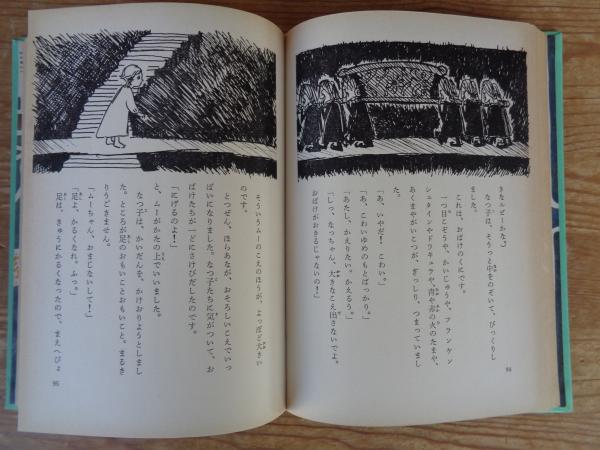 きなエビーかな？
なつ子は、そうっと中をのぞいて、びっくりし
ました。
これは、おばけのくにです。
一つ目こぞうや、かいじゅうや、フランケン
シュタインやドラキュラや、青や赤の火のたまや、
あくまやがいこつが、ぎっしり、つまっていまし
た。
「あ、いやだ！　こわい。」
「あ、こわいゆめのもとばっかり。」
「あたし、かえりたい。かえろう。」
「しっ、なっちゃん、大きなこえ出さないでよ。
おばけがおきるじゃないの！」
94
そういうムーのこえのほうが、よっぽど大きい
のです。
とつぜん、ほらあなが、おそろしいこえでいっ
ぱいになりました。なつ子たちに気がついて、お
ばけたちが一どにさけびだしたのです。
「にげるのよ！」
と、ムーがかたの上でいいました。
なつ子は、かいだんを、かけおりようとしまし
た。ところが足のおもいことおもいこと。まるき
りうごきません。
「ムーちゃん、おまじないして！」
「足よ、かるくなれ、ふっ。」
足は、きゅうにかるくなったので、まえへぴょ
95